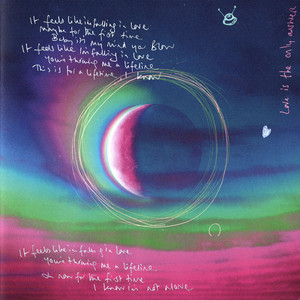 It feels like im falling in love
maybe for the first time
Baby it's my mind you blow
It feels like Im falling in love
You're throwing me a lifeline
This is for a lifetime I know
Love is the only answer
It feels like im falling in love
You're throwing me a lifeline
I now for the first time
I know im not alone